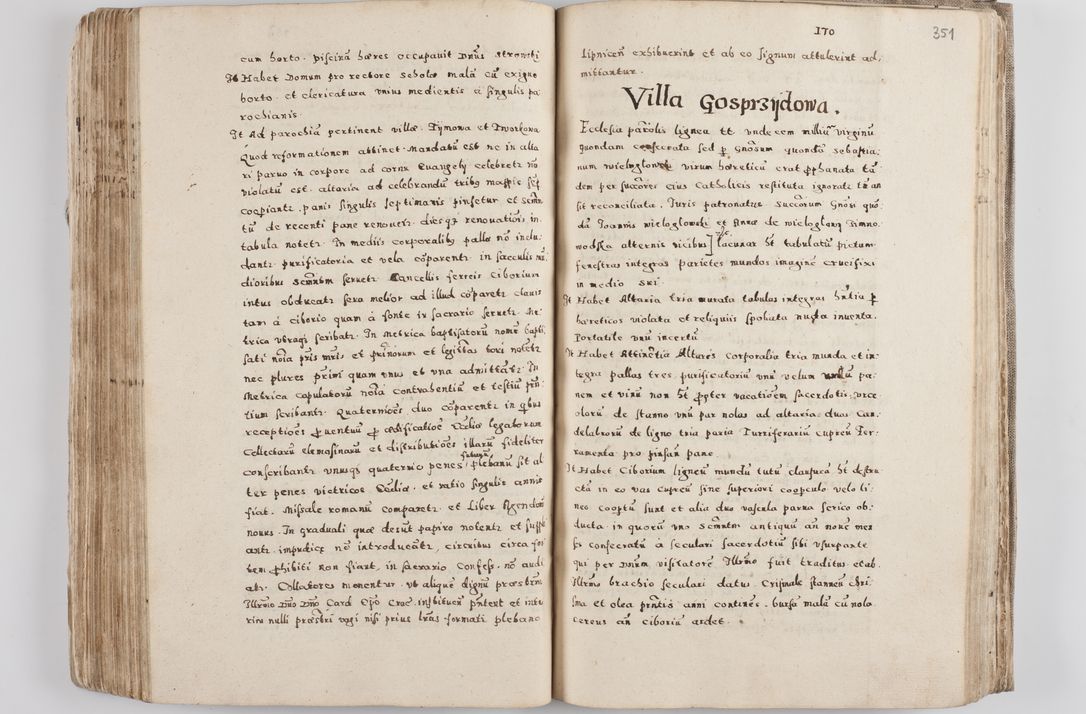 cum horto. piscinā hæres occupauit Dn̄us Stronski
It Habet Domum pro rectore scholæ malā cū exiguo
horto. et clericatura vnius medientis a singulis pa
rochianis.
It Ad parochiā pertinent villæ. Tymowa et Tworkowa
Quod reformationem attinet. Mandatū est ne in alta
ri paruo in corpore ad cornu Euangely celebretr
violatū est. altaria ad celebrandū tribus mappis
cooptantr. panis singulis septimanis pinsetur et
tū de recenti pane renouetr. diesqз renouationis in
tabula notetr. In mediis corporalibus palla nō inclu:
dantr. purificatoria et vela cōparentr in sacculis
dioribus servetr. Cancellis ferreis Ciborium
intus obducatr sera melior ad illud cōparetr clauis
tam á ciborio quam á fonte in sacrario servetr. Me:
trica vtraqз scribatr. In metrica baptisatorū nomē bapti
sati noīa pr̄is mr̄is et et legittus tori notetr
nec plures quam vnus et vna admittātr. In
Metrica copulatorū noīa contrahentiū et testiū
tium scribantr. Quaterniōes duo cōparentr in qbus
receptiōes puentuū p ædificatiōe Eccliæ legatorum
Collectarū elemosinarū et distributiōes illarū fideliter
futurū
conscribantr vnusqз quaternio penes plebanū sit al
ter penes vietricos Eccliæ. et ratio singulis annis
fiat. Missale romanū comparetr. et Liber Agendorū
nouus. In graduali quæ desūt papiro notentr et
antr. impudicæ nē introducātr, circuitus circa
tem phibiti non fiant, in sacrario Confess. nō audi
atr. Collatores monentur. vt aliquē dignū præstrm̄
Illrmo Dn̄o Dn̄o Card Ep̄o Crac. instituen̄ et inte
rim nulli præstri vagi nisi prius lr̄as formati plebano
170
351
Lipnicen̄ exhibuerint et ab eo signum attulerint ad:
mittantur.
Villa Gosprzydowa.
Ecclesia parōlis lignea tt vndecem milliū virginū
quondam consecrata sed p Gnōsum quondā Sebastia:
num wieloglowski virum hæreticū erat pphanata tā
dem per succōres eius Catholicis restituta ignoratr tn̄ an
sit reconciliata. Iuris patronatus succōrum Gnōsi quō:
dā Joannis wieloglowski et Annæ de wieloglowy Timno:
wodska alternis vicibus] lacunar ht tabulatū pictum.
fenestras integras parietes mundos imaginē crucifixi
in medio sui.
It Habet Altaria tria murata tabulas integras p
hæreticos violata et reliquiis spoliata nuda inuenta.
Portatile vnū incertū.
It Habet Attinētia Altares corporalia tria munda et in:
tegra pallas tres. purificatoriū vnū velum nullū pa:
nem et vinū non ht ppter vacatiōem sacerdotis. vrce
olorū de stanno vnū par nolas ad altaria. duas Can:
delabrorū de ligno tria paria Turriferariū cupreū Fer:
ramenta pro pinsen̄ pane
It Habet Ciborium ligneū mundū tutū clausurā ht destru
ctā in eo vas cupreū sine superiori coopculo velo li:
neo cooptū sunt et alia duo vascula parua serico ob:
ducta. in quorū vno antiquū an̄ nouē
consecratū á seculari sacerdotiū sibi vsurpante
qui per Dn̄um visitatorē Illrmo fuit traditus et ab
Illrmo brachio seculari datus. Crismale stanneū chri:
sma et olea pn̄tis anni continēs. bursa mala cū nola.
Cereus an̄ ciboriū ardet.